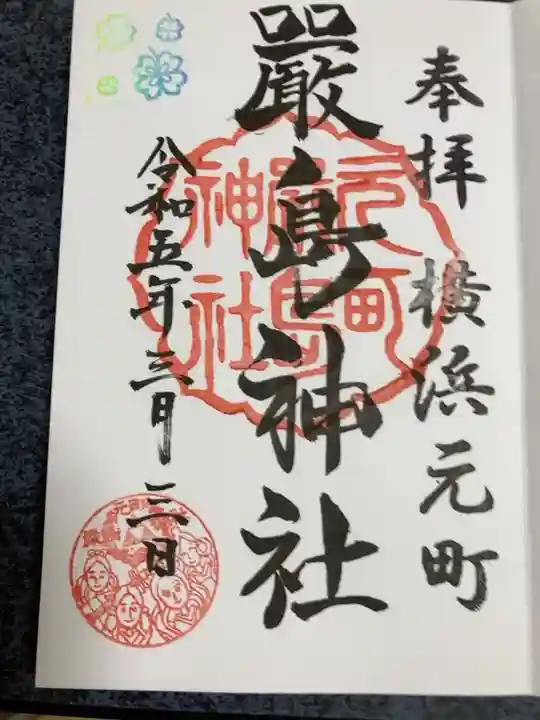 奉拝 横浜元町
嚴島神社
元町
嚴島
神社
令和五年三月二日